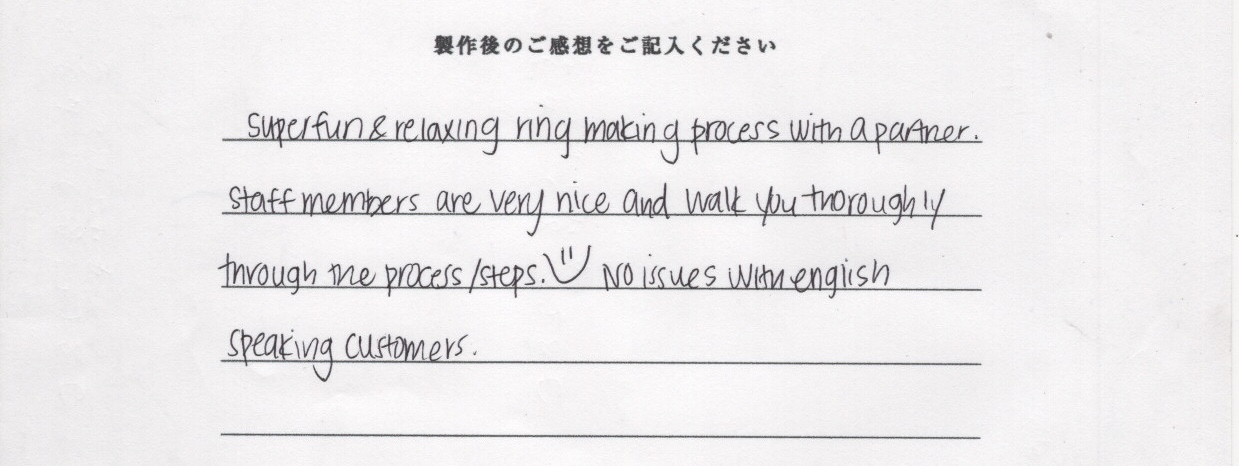 製作後のご感想をご記入ください
Superfun & relaxing ring making process with a partner.
Staff members are very nice and walk you thoroughly
through the process/steps. No issues with english
speaking customers.